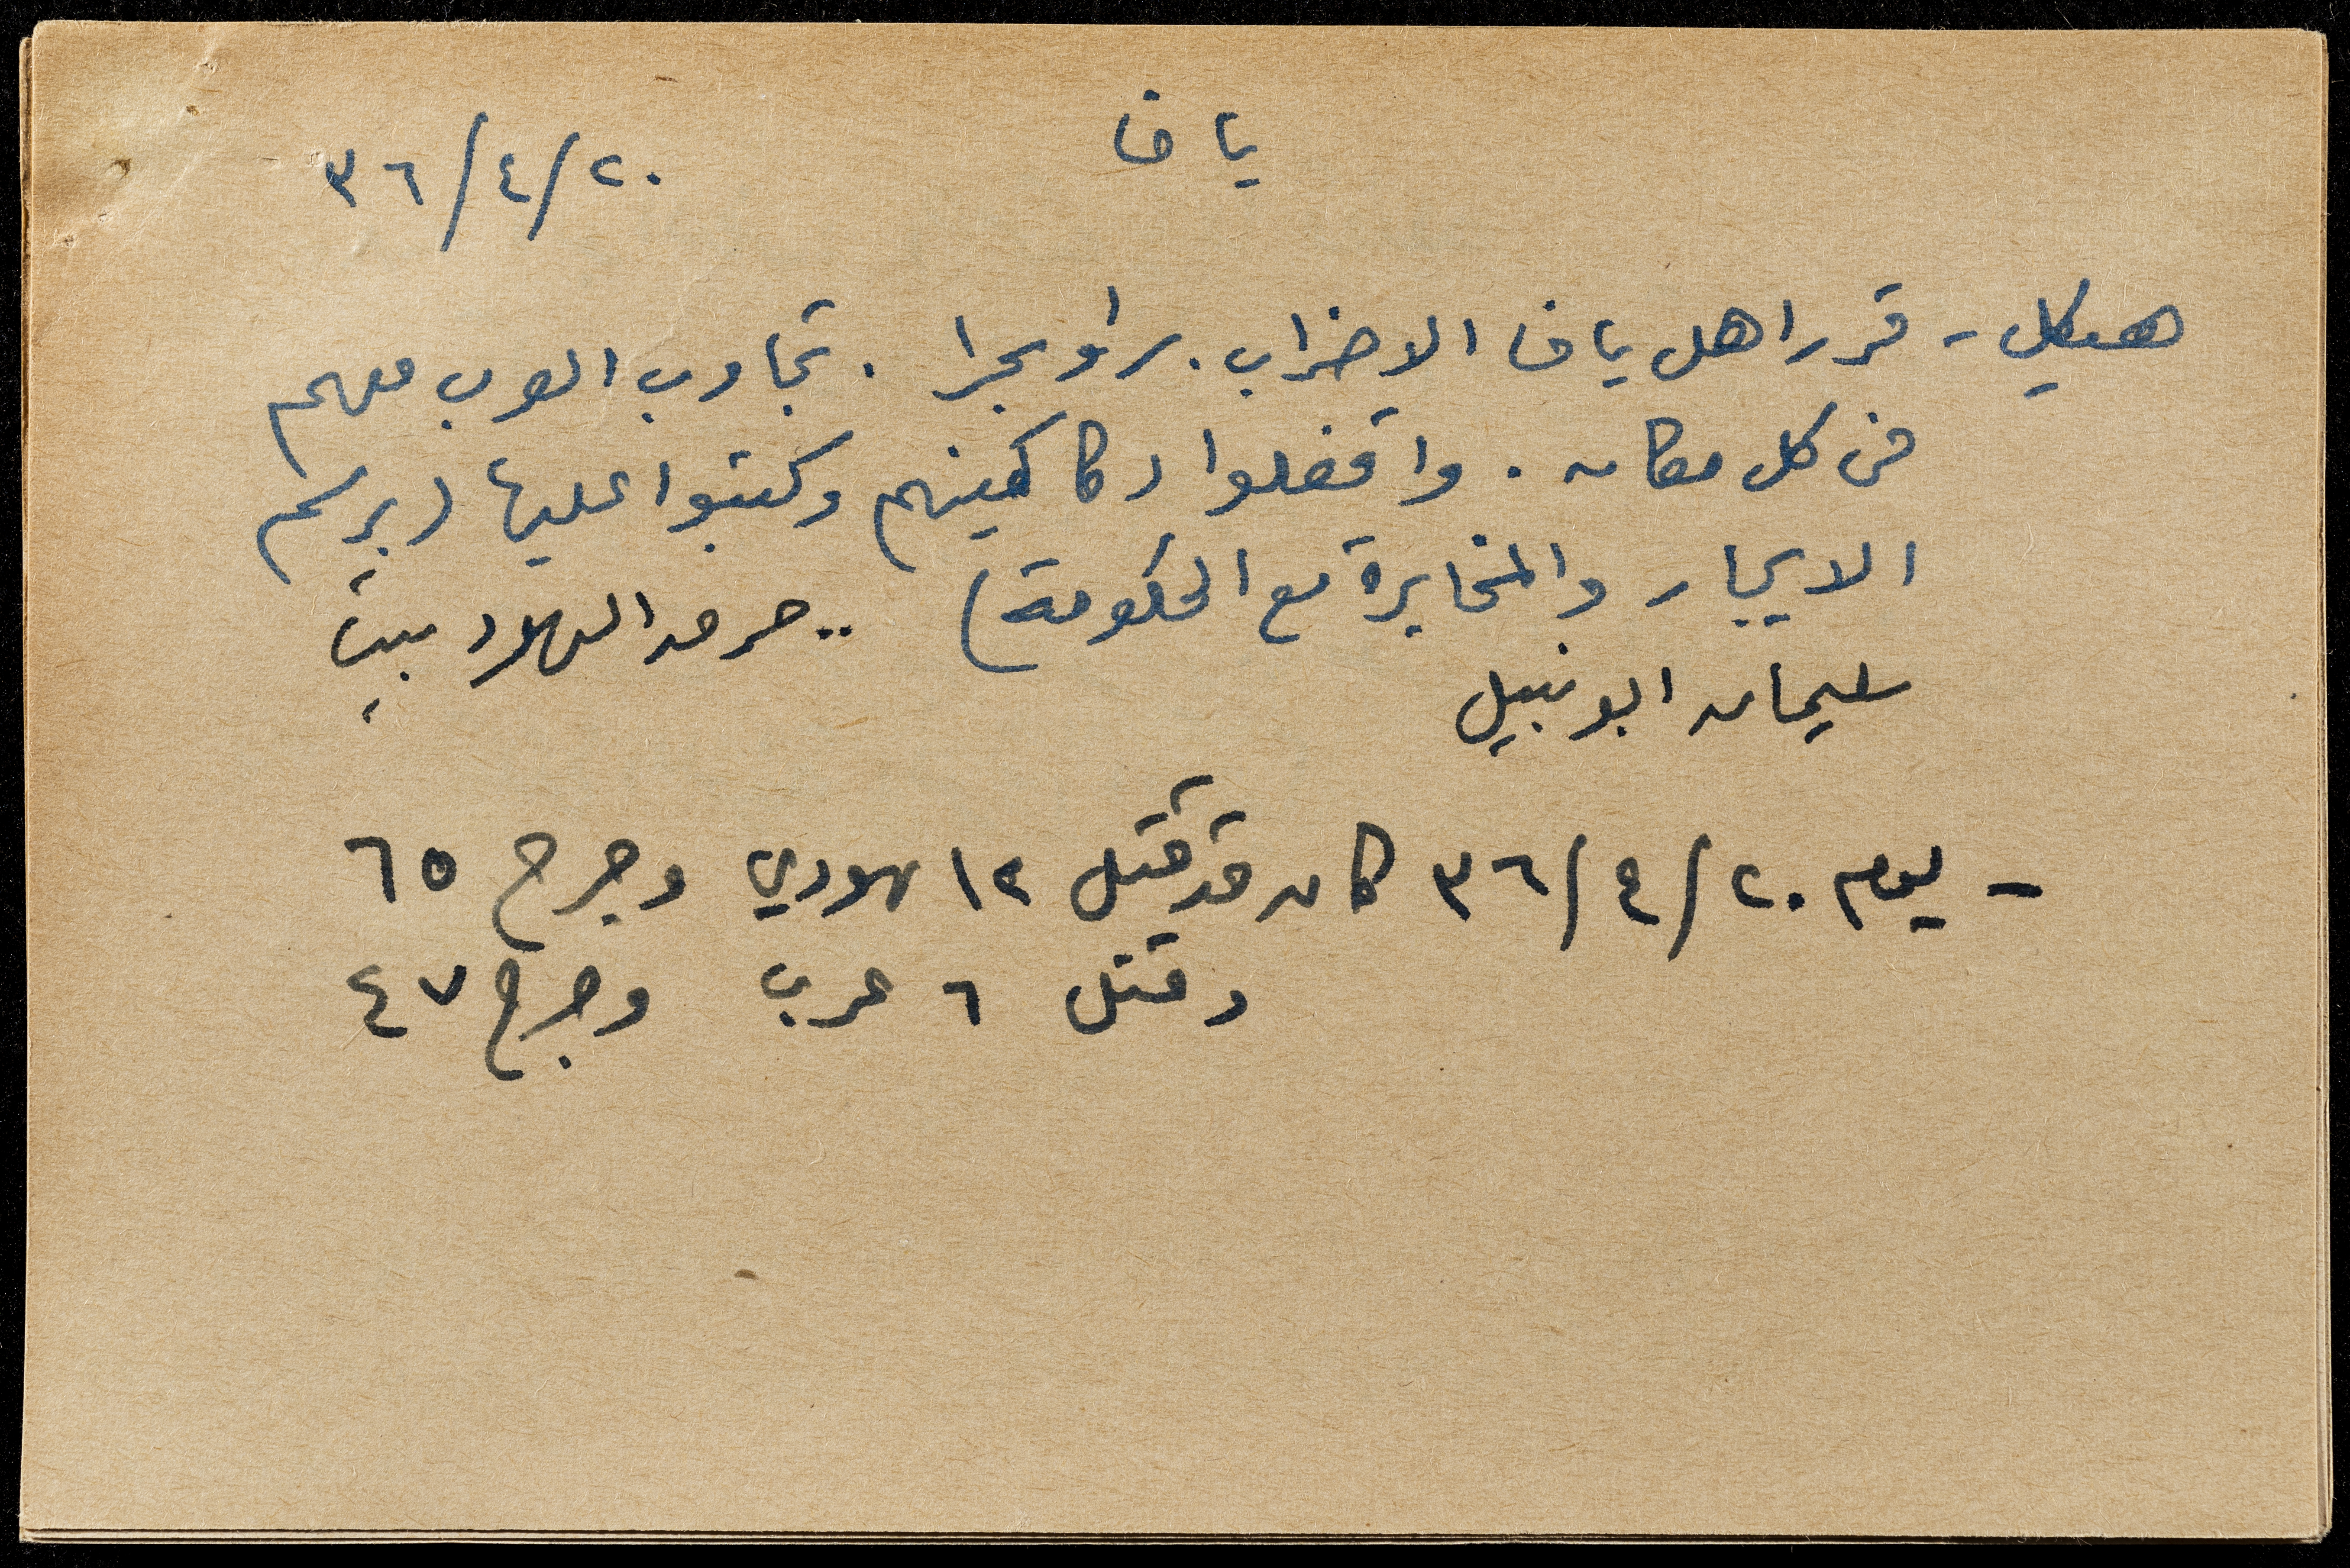 يافا ٢٠/٤/٣٦
هيكل - قرر اهل يافا الاضراب. براً وبحرا. تجاوب العرب معهم
في كل مكان. واقفلوا دكاكينهم وكتبوا عليها (برسم
الايجار والمخابرة مع الحكومة) .. حرم البلاد بيت
سليمان ابو نبيل
- يوم ٢٠/٤/٣٦ كان قد قتل ١٢ يهودي وجرح ٦٥
وقتل ٦ عرب وجرح ٤٧